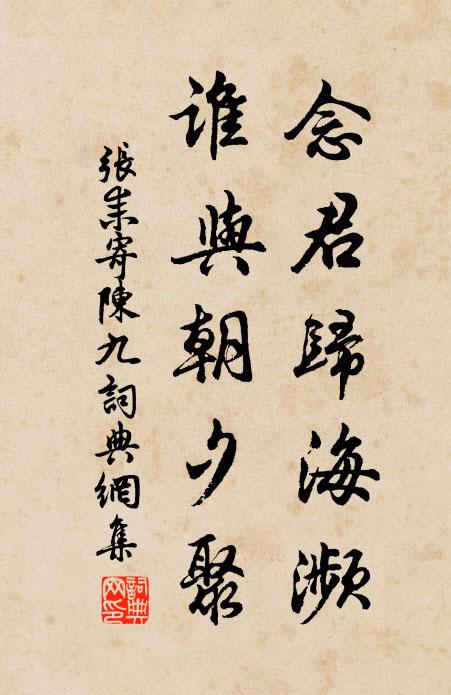 念君歸海瀕
誰與朝夕聚
張耒寄陳九詞典網集
詞典網印